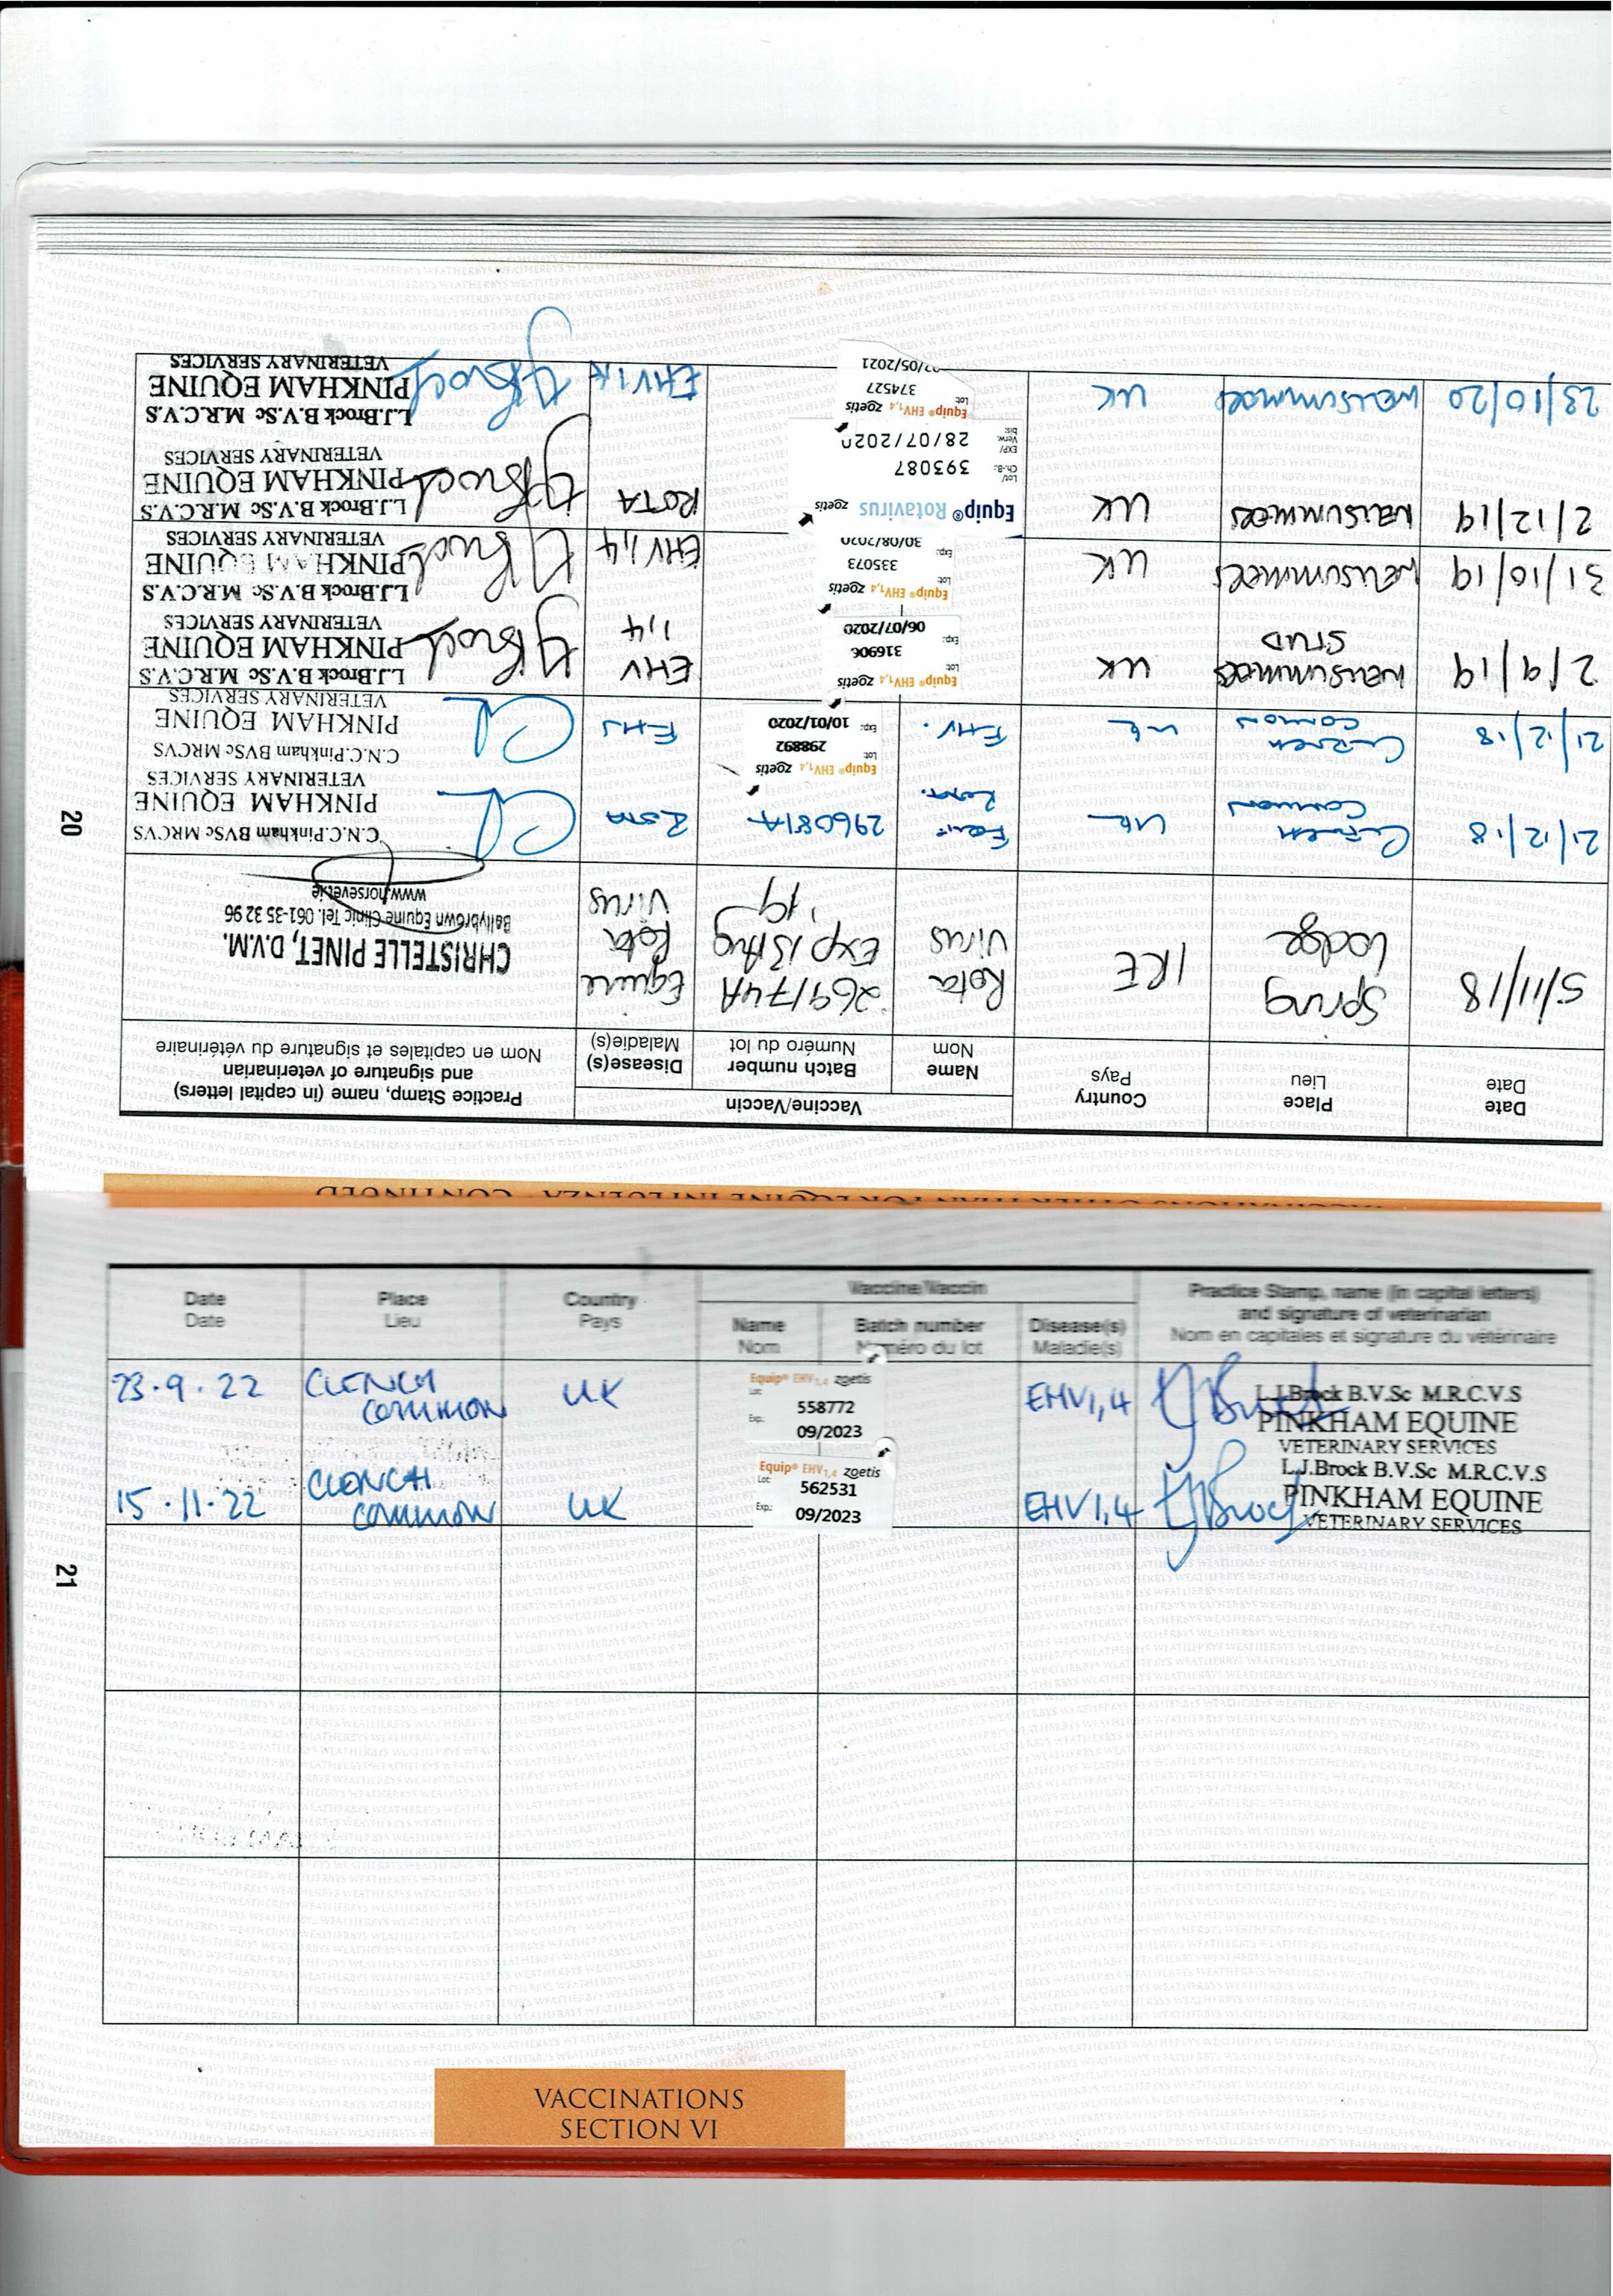 20
Date
Date
Place
Lieu
Country
Pays
Vaccine/Vaccin
Name
Nom
Batch number
Numéro du lot
Disease(s)
Maladie(s)
Practice Stamp, name (in capital letters)
and signature of veterinarian
Nom en capitales et signature du vétérinaire
5/11/18
Spring
Lodge
IRE
Rota
Virus
269174A
Exp 13 Aug
'19
Equine
Rota
Virus
CHRISTELLE PINET, D.V.M.
Ballybrown Equine Clinic Tel. 061-35 32 96
www.horsevet.ie
21/12/18
Common
UK
Equip
Rota.
296081A
Rota
C.N.C.Pinkham BVSc MRCVS
PINKHAM EQUINE
VETERINARY SERVICES
21/12/18
Common
UK
EHV.
Equip® EHV1,4 zoetis
Lot:
298892
Exp: 10/01/2020
EHV
C.N.C.Pinkham BVSc MRCVS
PINKHAM EQUINE
VETERINARY SERVICES
2/9/19
STUD
UK
Equip® EHV1,4 zoetis
Lot:
316906
Exp: 06/07/2020
EHV
1,4
L.J.Brock B.V.Sc M.R.C.V.S
PINKHAM EQUINE
VETERINARY SERVICES
31/10/19
UK
Equip® EHV1,4 zoetis
Lot:
335073
Exp: 30/08/2020
EHV1,4
L.J.Brock B.V.Sc M.R.C.V.S
PINKHAM EQUINE
VETERINARY SERVICES
2/12/19
UK
Equip® Rotavirus zoetis
Lot/
Ch.-B.: 393087
EXP/
Verw.
bis: 28/07/2020
ROTA
L.J.Brock B.V.Sc M.R.C.V.S
PINKHAM EQUINE
VETERINARY SERVICES
23/10/20
UK
Equip® EHV1,4 zoetis
Lot:
374527
27/05/2021
L.J.Brock B.V.Sc M.R.C.V.S
PINKHAM EQUINE
VETERINARY SERVICES
21
Date
Date
Place
Lieu
Country
Pays
Vaccine/Vaccin
Name
Nom
Batch number
Numéro du lot
Disease(s)
Maladie(s)
Practice Stamp, name (in capital letters)
and signature of veterinarian
Nom en capitales et signature du vétérinaire
23.9.22
CLENCH
COMMON
UK
Equip® EHV1,4 zoetis
Lot:
558772
Exp: 09/2023
EHV1,4
L.J.Brock B.V.Sc M.R.C.V.S
PINKHAM EQUINE
VETERINARY SERVICES
15.11.22
CLENCH
COMMON
UK
Equip® EHV1,4 zoetis
Lot: 562531
Exp: 09/2023
EHV1,4
L.J.Brock B.V.Sc M.R.C.V.S
PINKHAM EQUINE
VETERINARY SERVICES
VACCINATIONS
SECTION VI